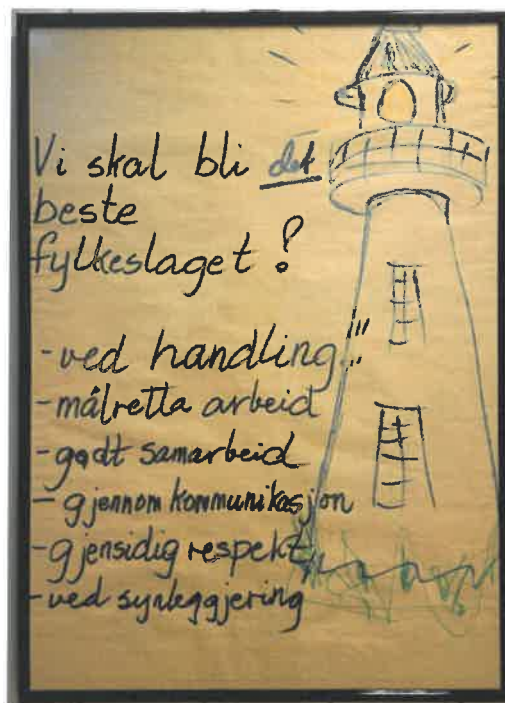 Vi skal bli det
beste
fylkeslaget?
- ved handling!!!
- målretta arbeid
- godt samarbeid
- gjennom kommunikasjon
- gjensidig respekt
- ved synleggjering